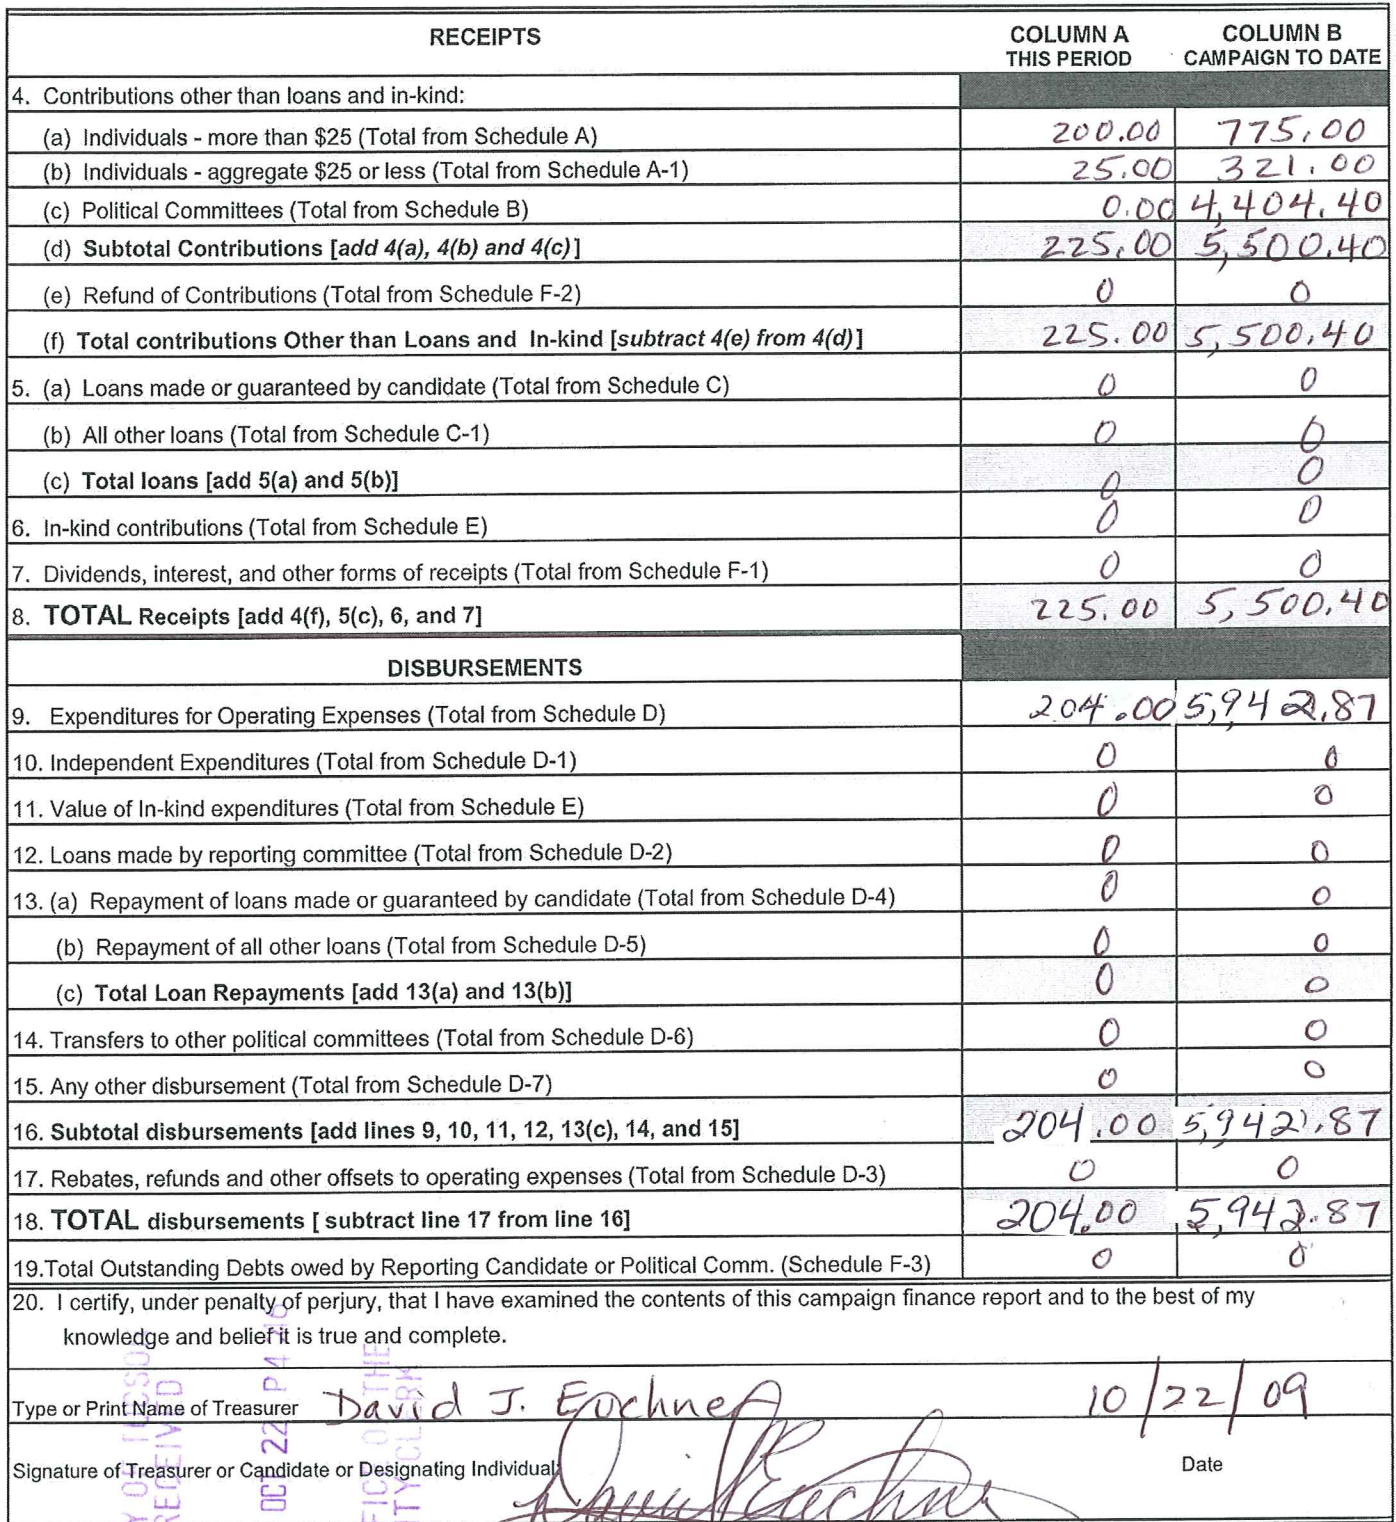 RECEIPTS COLUMN A COLUMN B
THIS PERIOD CAMPAIGN TO DATE
4. Contributions other than loans and in-kind:
(a) Individuals - more than $25 (Total from Schedule A) 200.00 775.00
(b) Individuals - aggregate $25 or less (Total from Schedule A-1) 25.00 321.00
(c) Political Committees (Total from Schedule B) 0.00 4,404.40
(d) Subtotal Contributions [add 4(a), 4(b) and 4(c)] 225.00 5,500.40
(e) Refund of Contributions (Total from Schedule F-2) 0 0
(f) Total contributions Other than Loans and In-kind [subtract 4(e) from 4(d)] 225.00 5,500.40
5. (a) Loans made or guaranteed by candidate (Total from Schedule C) 0 0
(b) All other loans (Total from Schedule C-1) 0 0
(c) Total loans [add 5(a) and 5(b)] 0 0
6. In-kind contributions (Total from Schedule E) 0 0
7. Dividends, interest, and other forms of receipts (Total from Schedule F-1) 0 0
8. TOTAL Receipts [add 4(f), 5(c), 6, and 7] 225.00 5,500.40
DISBURSEMENTS
9. Expenditures for Operating Expenses (Total from Schedule D) 204.00 5,942.87
10. Independent Expenditures (Total from Schedule D-1) 0 0
11. Value of In-kind expenditures (Total from Schedule E) 0 0
12. Loans made by reporting committee (Total from Schedule D-2) 0 0
13. (a) Repayment of loans made or guaranteed by candidate (Total from Schedule D-4) 0 0
(b) Repayment of all other loans (Total from Schedule D-5) 0 0
(c) Total Loan Repayments [add 13(a) and 13(b)] 0 0
14. Transfers to other political committees (Total from Schedule D-6) 0 0
15. Any other disbursement (Total from Schedule D-7) 0 0
16. Subtotal disbursements [add lines 9, 10, 11, 12, 13(c), 14, and 15] 204.00 5,942.87
17. Rebates, refunds and other offsets to operating expenses (Total from Schedule D-3) 0 0
18. TOTAL disbursements [ subtract line 17 from line 16] 204.00 5,942.87
19.Total Outstanding Debts owed by Reporting Candidate or Political Comm. (Schedule F-3) 0 0
20. I certify, under penalty of perjury, that I have examined the contents of this campaign finance report and to the best of my
knowledge and belief it is true and complete.
Type or Print Name of Treasurer David J. 10/22/09
Signature of Treasurer or Candidate or Designating Individual Date
RECEIVED
OCT 22 P 4